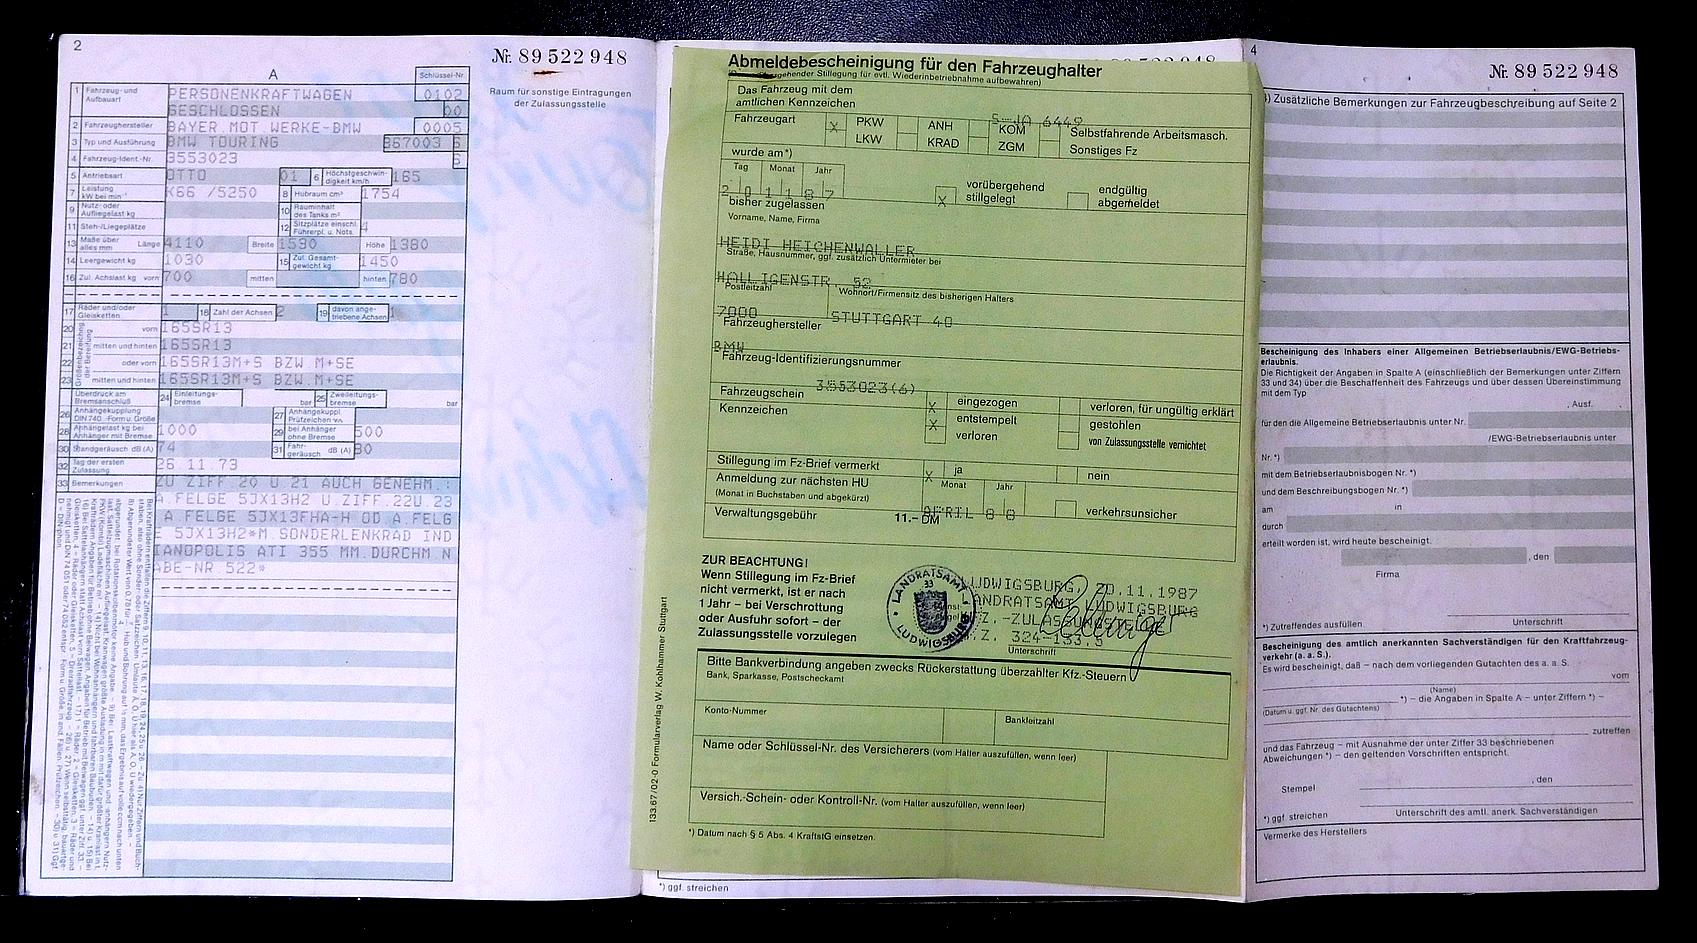 2
Nr. 89 522 948
A
Schlüssel-Nr
Raum für sonstige Eintragungen
der Zulassungsstelle
1 Fahrzeug- und Aufbauart PERSONENKRAFTWAGEN 0102
GESCHLOSSEN 00
2 Fahrzeughersteller BAYER.MOT.WERKE-BMW 0005
3 Typ und Ausführung BMW TOURING 867003 6
4 Fahrzeug-Ident.-Nr. 3553023 6
5 Antriebsart OTTO 01 6 Höchstgeschwindigkeit km/h 165
7 Leistung kW bei min⁻¹ K66 /5250 8 Hubraum cm³ 1754
9 Nutz- oder Aufliegelast kg 10 Rauminhalt des Tanks m³
11 Steh-/Liegeplätze 12 Sitzplätze einschl. Führerpl. u. Nots. 4
13 Maße über alles mm Länge 4110 Breite 1590 Höhe 1380
14 Leergewicht kg 1030 15 Zul. Gesamtgewicht kg 1450
16 Zul. Achslast kg vorn 700 mitten hinten 780
17 Räder und/oder Gleisketten 1 18 Zahl der Achsen 2 19 davon angetriebene Achsen 1
20 vorn 165SR13
21 mitten und hinten 165SR13
22 oder vorn 165SR13M+S BZW.M+SE
23 mitten und hinten 165SR13M+S BZW.M+SE
Überdruck am Bremsanschluß 24 Einleitungsbremse bar 25 Zweileitungsbremse bar
26 Anhängekupplung DIN 740.-Form u. Größe 27 Anhängekuppl. Prüfzeichen
28 Anhängelast kg bei Anhänger mit Bremse 1000 29 bei Anhänger ohne Bremse 500
30 Standgeräusch dB (A) 74 31 Fahrgeräusch dB (A) 80
32 Tag der ersten Zulassung 26.11.73
33 Bemerkungen ZU ZIFF.20 U.21 AUCH GENEHM.:
A.FELGE 5JX13H2 U.ZIFF.22U.23
A FELGE 5JX13FHA-H OD A.FELG
E 5JX13H2*M.SONDERLENKRAD IND
IANOPOLIS ATI 355 MM.DURCHM.N
ABE-NR 522*
Abmeldebescheinigung für den Fahrzeughalter
gehender Stillegung für evtl. Wiederinbetriebnahme aufbewahren)
Das Fahrzeug mit dem
amtlichen Kennzeichen
S-JA 6449
Fahrzeugart X PKW ANH KOM Selbstfahrende Arbeitsmasch.
LKW KRAD ZGM Sonstiges Fz
wurde am*)
Tag Monat Jahr
201187
X vorübergehend stillgelegt endgültig abgemeldet
bisher zugelassen
Vorname, Name, Firma
HEIDI HEICHENWALLER
Straße, Hausnummer, ggf. zusätzlich Untermieter bei
HALLIGENSTR. 52
Postleitzahl Wohnort/Firmensitz des bisherigen Halters
7000 STUTTGART 40
Fahrzeughersteller
BMW
Fahrzeug-Identifizierungsnummer
3553023(6)
Fahrzeugschein X eingezogen verloren, für ungültig erklärt
Kennzeichen X entstempelt gestohlen
verloren von Zulassungsstelle vernichtet
Stillegung im Fz-Brief vermerkt X ja nein
Anmeldung zur nächsten HU Monat Jahr
(Monat in Buchstaben und abgekürzt) APRIL 88 verkehrsunsicher
Verwaltungsgebühr 11.– DM
ZUR BEACHTUNG!
Wenn Stillegung im Fz-Brief
nicht vermerkt, ist er nach
1 Jahr – bei Verschrottung
oder Ausfuhr sofort – der
Zulassungsstelle vorzulegen
LANDRATSAMT
33
LUDWIGSBURG
LUDWIGSBURG, 20.11.1987
ANDRATSAMT LUDWIGSBURG
Z.-ZULASSUNGSSTELLE
Z. 324-133.5
Unterschrift
Bitte Bankverbindung angeben zwecks Rückerstattung überzahlter Kfz.-Steuern
Bank, Sparkasse, Postscheckamt
Konto-Nummer Bankleitzahl
Name oder Schlüssel-Nr. des Versicherers (vom Halter auszufüllen, wenn leer)
Versich.-Schein- oder Kontroll-Nr. (vom Halter auszufüllen, wenn leer)
*) Datum nach § 5 Abs. 4 KraftStG einsetzen.
133.67/02-0 Formularverlag W. Kohlhammer Stuttgart
*) ggf. streichen
4
Nr. 89 522 948
Zusätzliche Bemerkungen zur Fahrzeugbeschreibung auf Seite 2
Bescheinigung des Inhabers einer Allgemeinen Betriebserlaubnis/EWG-Betriebs-
erlaubnis.
Die Richtigkeit der Angaben in Spalte A (einschließlich der Bemerkungen unter Ziffern
33 und 34) über die Beschaffenheit des Fahrzeugs und über dessen Übereinstimmung
mit dem Typ
, Ausf.
für den die Allgemeine Betriebserlaubnis unter Nr.
/EWG-Betriebserlaubnis unter
Nr. *)
mit dem Betriebserlaubnisbogen Nr. *)
und dem Beschreibungsbogen Nr. *)
am in
durch
erteilt worden ist, wird heute bescheinigt.
, den
Firma
*) Zutreffendes ausfüllen. Unterschrift
Bescheinigung des amtlich anerkannten Sachverständigen für den Kraftfahrzeug-
verkehr (a. a. S.).
Es wird bescheinigt, daß – nach dem vorliegenden Gutachten des a. a. S.
vom
(Name)
*) – die Angaben in Spalte A – unter Ziffern *) –
(Datum u. ggf. Nr. des Gutachtens)
zutreffen
und das Fahrzeug – mit Ausnahme der unter Ziffer 33 beschriebenen
Abweichungen *) – den geltenden Vorschriften entspricht.
, den
Stempel
*) ggf. streichen Unterschrift des amtl. anerk. Sachverständigen
Vermerke des Herstellers